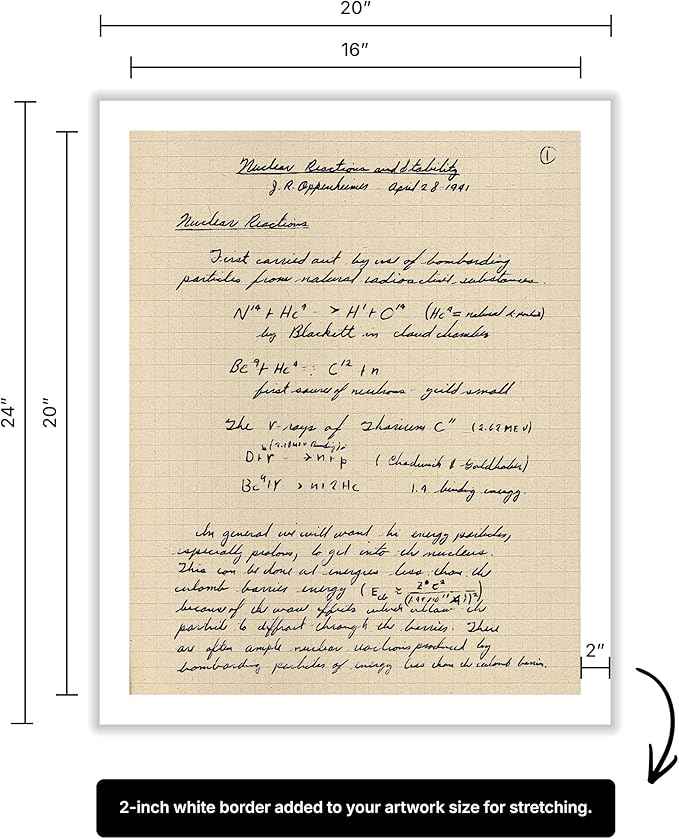 20”
16”
24”
20”
①
Nuclear Reactions and Stability
J. R. Oppenheimer April 28 1941
Nuclear Reactions
First carried out by use of bombarding
particles from natural radioactive substances.
N¹⁴ + He⁴ → H¹ + O¹⁷ (He⁴ = natural α particles)
by Blackett in cloud chamber
Be⁹ + He⁴ → C¹² + n
first source of neutrons - yield small
The γ-rays of Thorium C" (2.62 MEV)
D + γ → n + p (Chadwick & Goldhaber)
Be⁹ + γ → n + 2 He 1.9 binding energy.
In general we will want hi energy particles,
especially protons, to get into the nucleus.
This can be done at energies less than the
culomb barrier energy (
because of the wave effects which allow the
particle to diffract through the barrier. There
are often ample nuclear reactions produced by
bombarding particles of energy less than the culomb barrier.
2”
2-inch white border added to your artwork size for stretching.